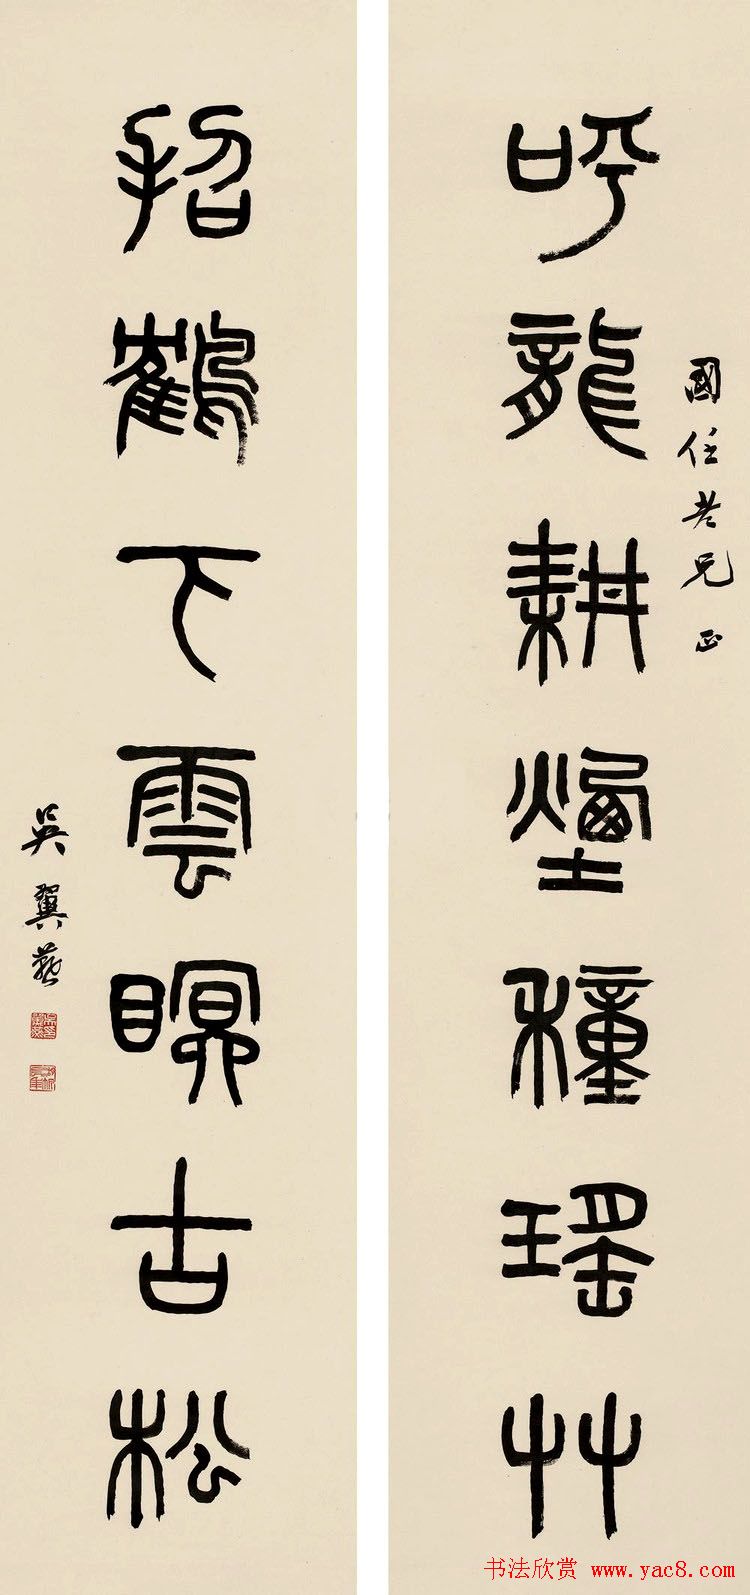 呼龍耕煙種瑤草
國任老兄正
招鶴下雲瞑古松
吳翼燕
书法欣赏 www.yac8.com